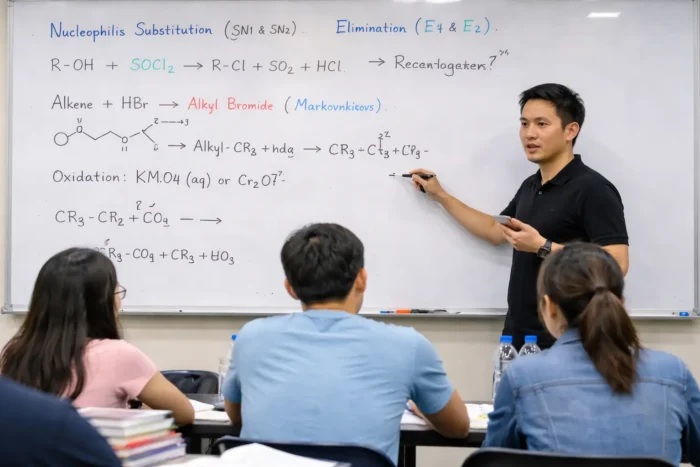 Nucleophilis Substitution (SN1 & SN2). Elimination (E4 & E2).
R-OH + SOCl₂ → R-Cl + SO₂ + HCl. → Recanlogaters?
Alkene + HBr → Alkyl Bromide (Markovnkicovs).
→ Alkyl-CR₃ + hdg → CR₃
Oxidation: KM.O4 (aq) or Cr₂O7²-
CR₃-CR₂ + CO₉ - →
-CO₉ + CR₃ + HO₃